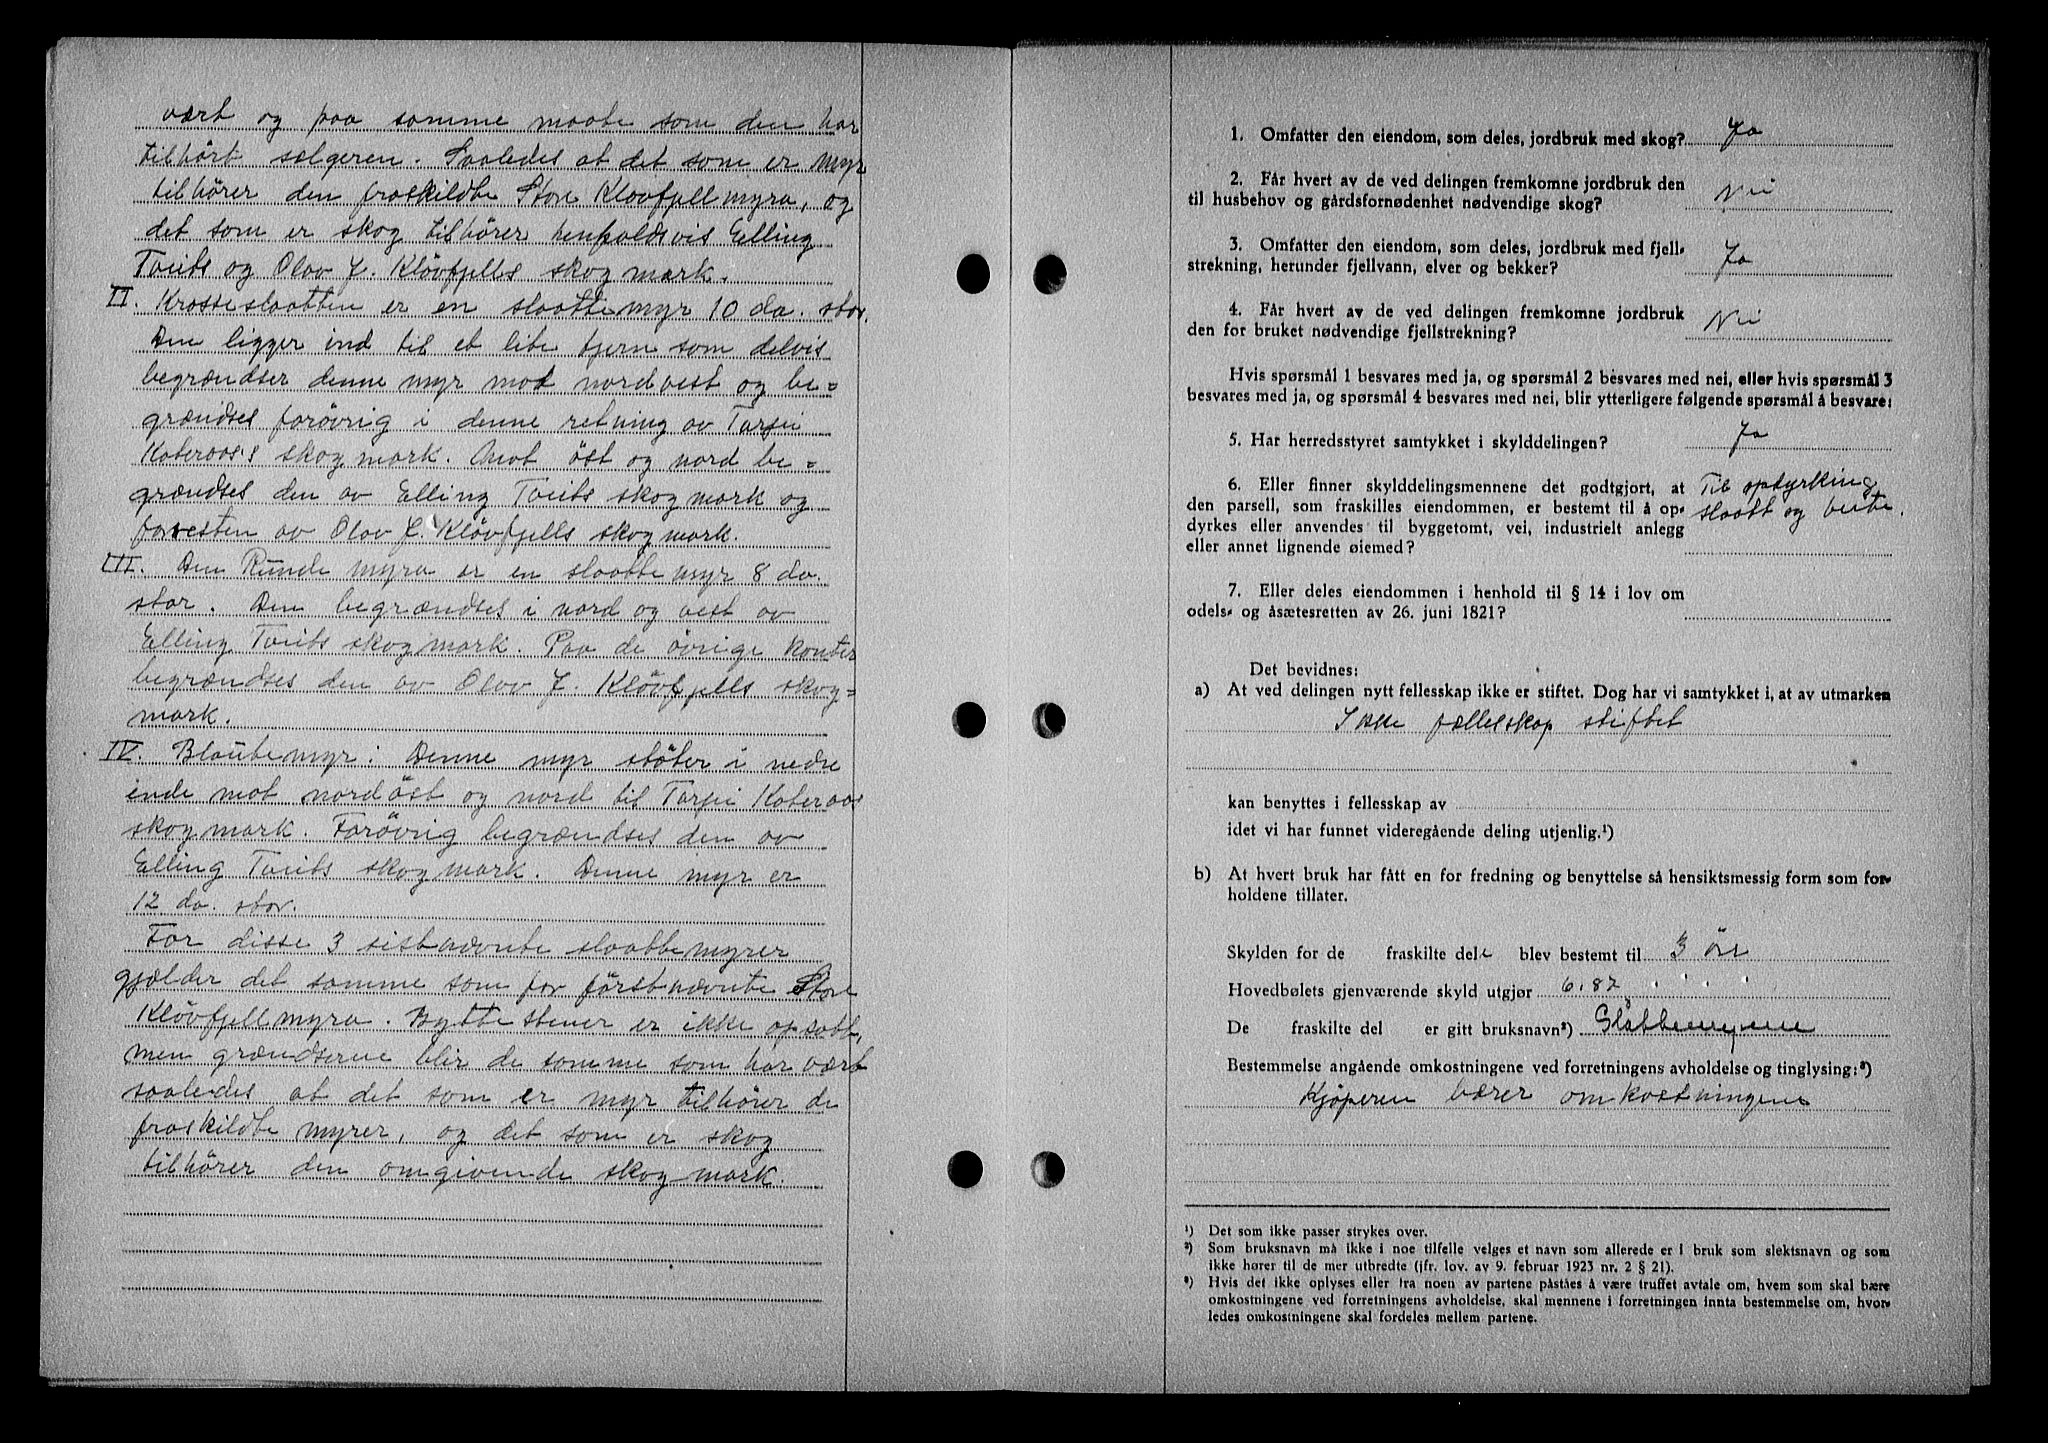 vært og paa samme maate som den har
tilhört sælgeren. Saaledes at det som er myr
tilhörer den fraskildte Store Klövfjellmyra, og
det som er skog tilhörer henholdsvis Elling
Tveits og Olav J. Klövfjells skogmark.
II. Krosseslaatten er en slaattemyr 10 da. stor.
Den ligger ind til et lite tjern som delvis
begrændser denne myr mot nordvest og be-
grændses forövrig i denne retning av Tarjei
Kateraas's skogmark. Mot öst og nord be-
grændses den av Elling Tveits skogmark og
forresten av Olav J. Klövfjells skogmark.
III. Den Runde myra er en slaattemyr 8 da.
stor. Den begrændses i nord og vest av
Elling Tveits skogmark. Paa de övrige kanter
begrændses den av Olav J. Klövfjells skog-
mark.
IV. Blautemyr: Denne myr stöter i nedre
ende mot nordöst og nord til Tarjei Kateraas
skogmark. Forövrig begrændses den av
Elling Tveits skogmark. Denne myr er
12 da. stor.
For disse 3 sistnævnte slaattemyrer
gjælder det samme som for förstnævnte Store
Klövfjellmyra. Byttestener er ikke opsatt,
men grændserne blir de samme som har vært
saaledes at det som er myr tilhörer de
fraskildte myrer, og det som er skog
tilhörer den omgivende skogmark.
1. Omfatter den eiendom, som deles, jordbruk med skog? Ja
2. Får hvert av de ved delingen fremkomne jordbruk den
til husbehov og gårdsfornødenhet nødvendige skog? Nei
3. Omfatter den eiendom, som deles, jordbruk med fjell-
strekning, herunder fjellvann, elver og bekker? Ja
4. Får hvert av de ved delingen fremkomne jordbruk
den for bruket nødvendige fjellstrekning? Nei
Hvis spørsmål 1 besvares med ja, og spørsmål 2 besvares med nei, eller hvis spørsmål 3
besvares med ja, og spørsmål 4 besvares med nei, blir ytterligere følgende spørsmål å besvare:
5. Har herredsstyret samtykket i skylddelingen? Ja
6. Eller finner skylddelingsmennene det godtgjort, at
den parsell, som fraskilles eiendommen, er bestemt til å op-
dyrkes eller anvendes til byggetomt, vei, industrielt anlegg
eller annet lignende øiemed?
Til opdyrking
slaatt og beite.
7. Eller deles eiendommen i henhold til § 14 i lov om
odels- og åsætesretten av 26. juni 1821?
Det bevidnes:
a) At ved delingen nytt fellesskap ikke er stiftet. Dog har vi samtykket i, at av utmarken
Ikke fællesskap stiftet
kan benyttes i fellesskap av
idet vi har funnet videregående deling utjenlig.¹)
b) At hvert bruk har fått en for fredning og benyttelse så hensiktsmessig form som for-
holdene tillater.
Skylden for de fraskilte dele blev bestemt til 3 öre
Hovedbølets gjenværende skyld utgjør 6.87
De fraskilte del er gitt bruksnavn²) Slåttemyrene
Bestemmelse angående omkostningene ved forretningens avholdelse og tinglysing:³)
Kjøperen bærer omkostningene
¹) Det som ikke passer strykes over.
²) Som bruksnavn må ikke i noe tilfelle velges et navn som allerede er i bruk som slektsnavn og som
ikke hører til de mer utbredte (jfr. lov. av 9. februar 1923 nr. 2 § 21).
³) Hvis det ikke oplyses eller fra noen av partene påståes å være truffet avtale om, hvem som skal bære
omkostningene ved forretningens avholdelse, skal mennene i forretningen innta bestemmelse om, hvor-
ledes omkostningene skal fordeles mellem partene.